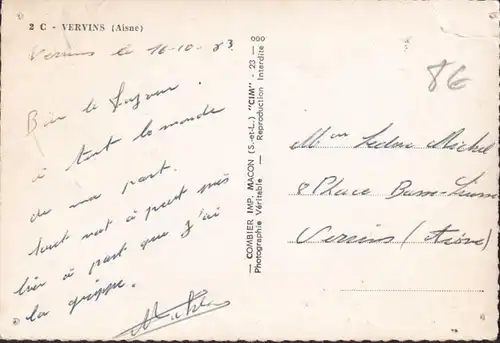 2 C - VERVINS (Aisne)
Vervins le 16-10-83
Bien le
à tout le monde
de ma part.
tout va à peut près
bien à part que j'ai
la grippe.
COMBIER IMP. MACON (S.-et-L.) "CIM" - 23 - 000
Photographie Véritable - Reproduction Interdite
86
Leduc Michel
8 Place
Vervins (Aisne)